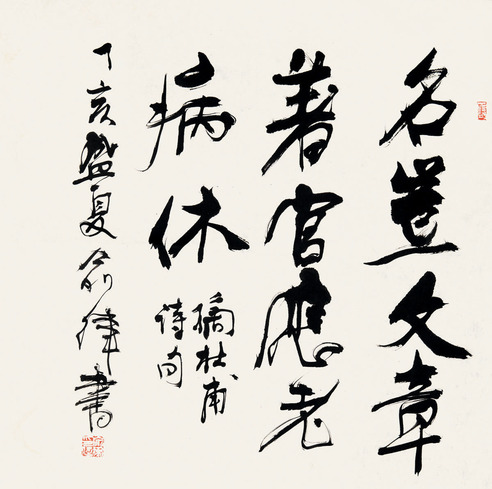 名豈文章
著官應老
病休
摘杜甫
詩句
丁亥盛夏俞律書